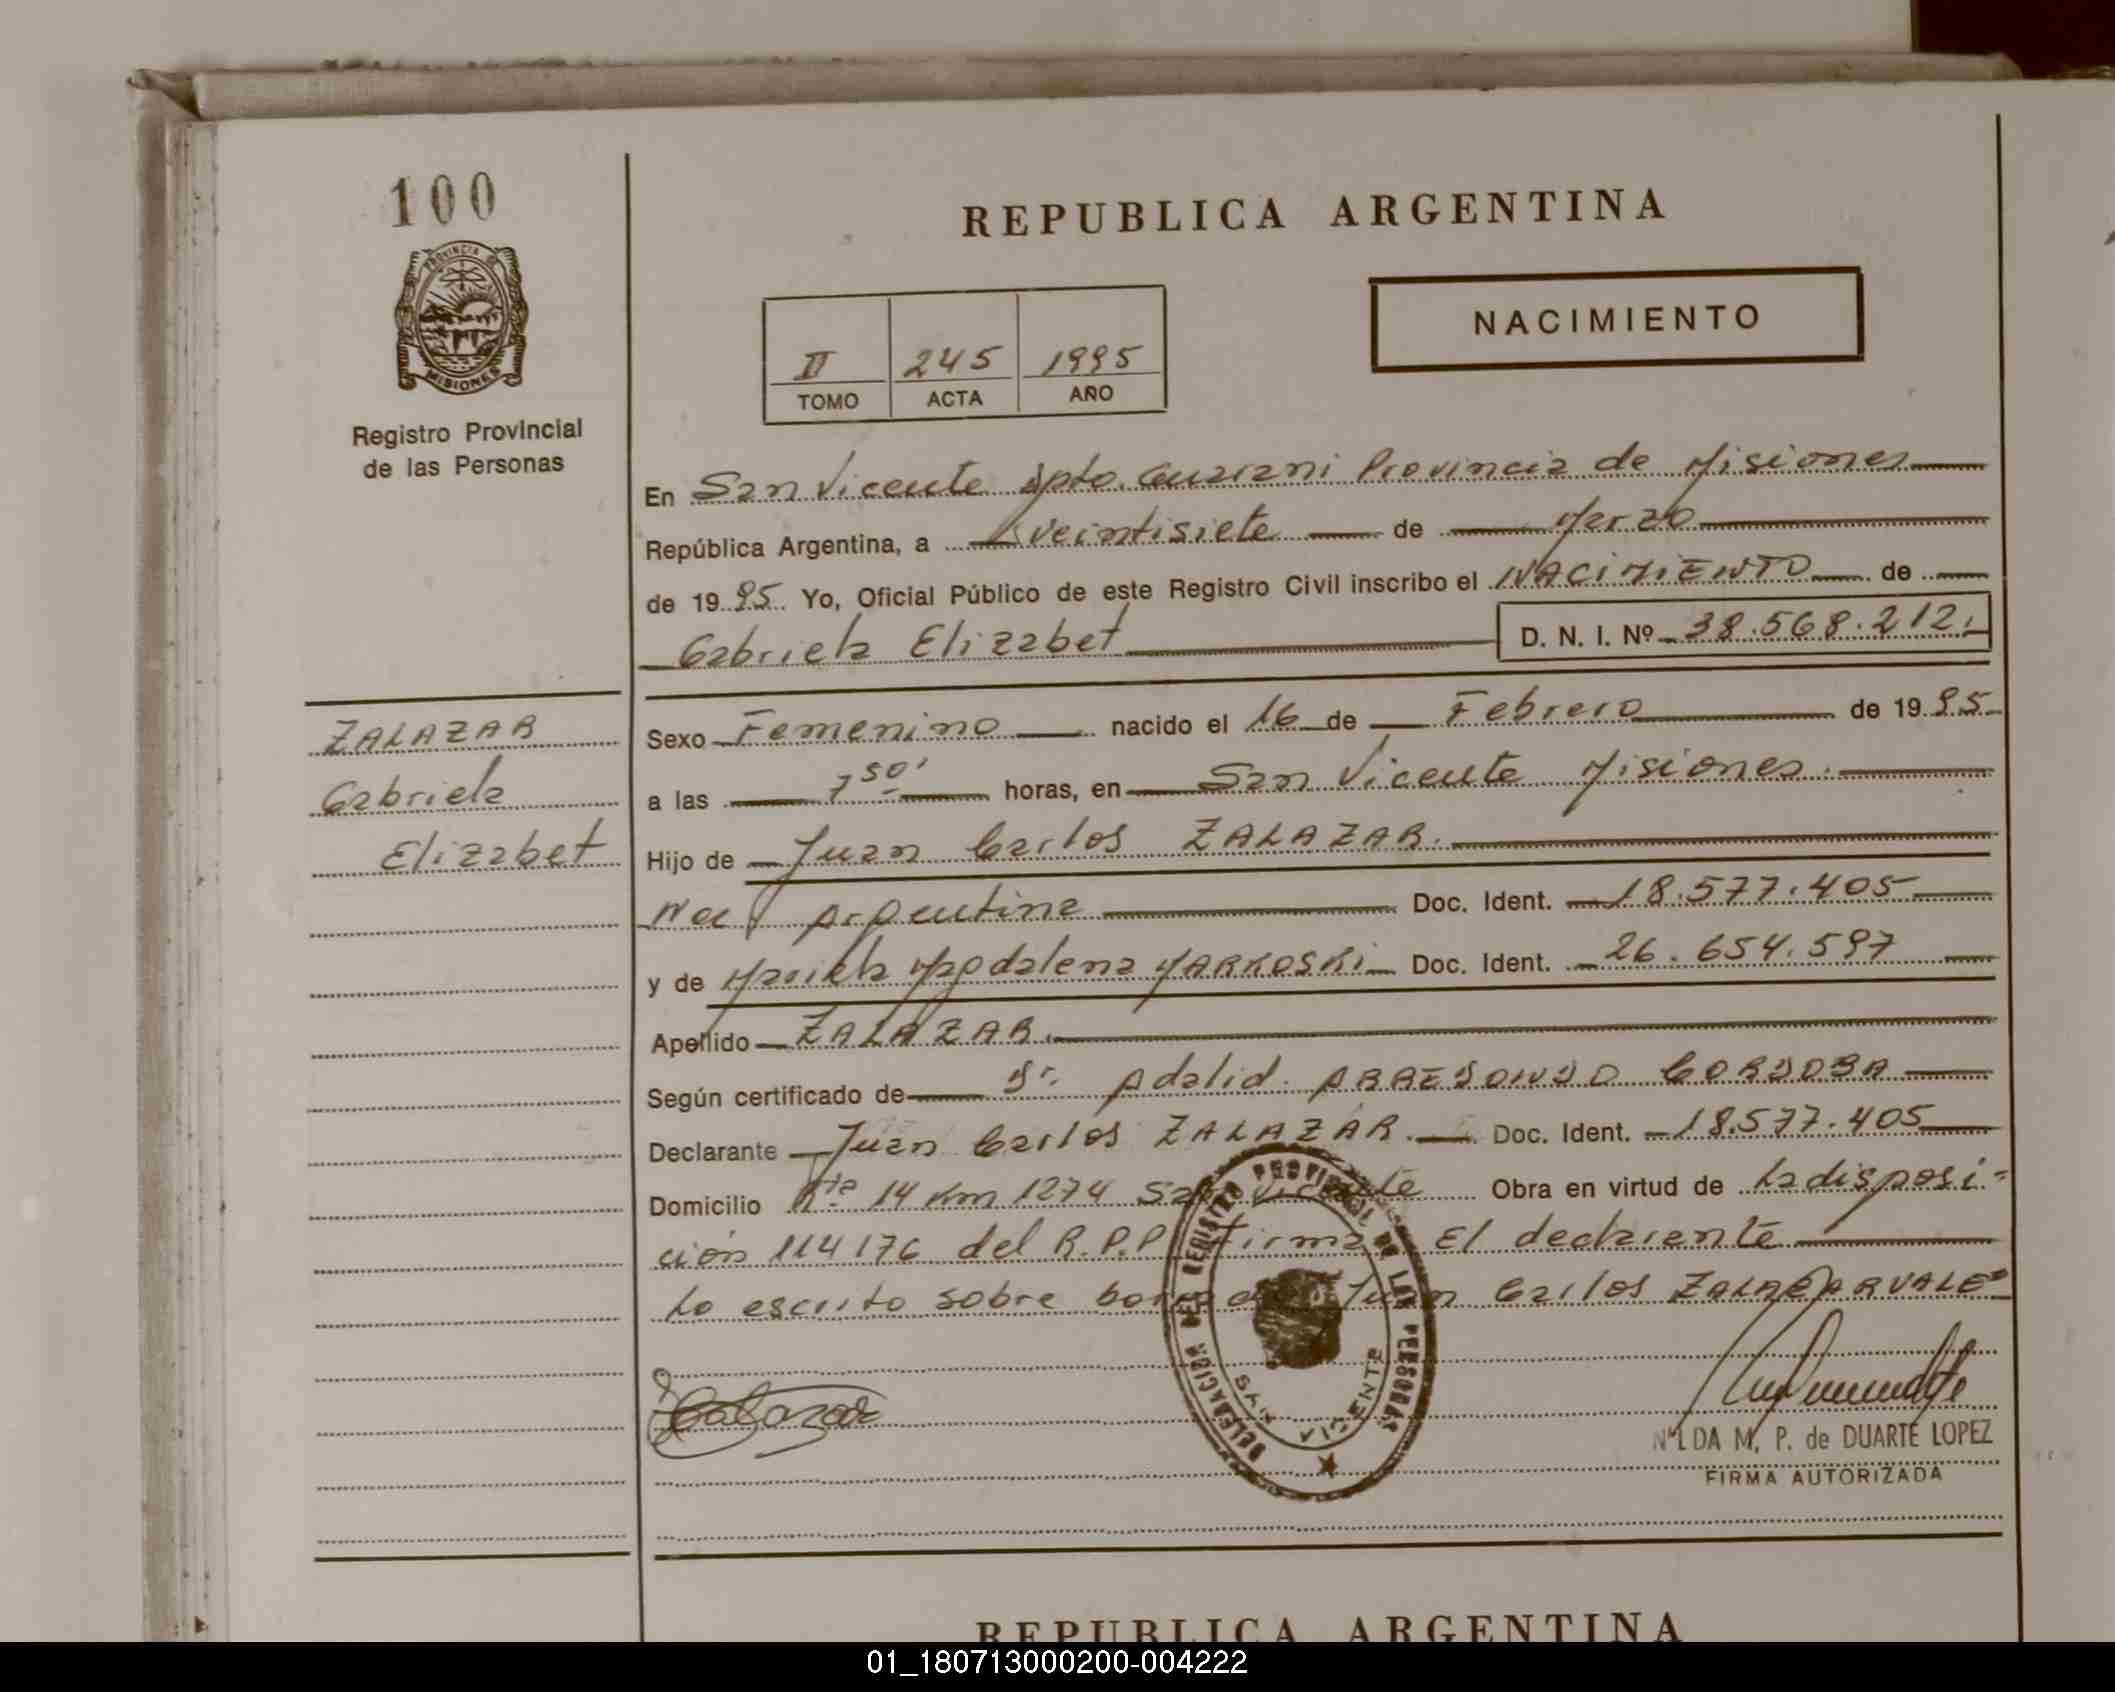 100
PROVINCIA DE
MISIONES
Registro Provincial
de las Personas
REPUBLICA ARGENTINA
II 245 1995
TOMO ACTA AÑO
NACIMIENTO
En San Vicente Dpto. Guarani Provincia de Misiones
República Argentina, a veintisiete de Marzo
de 1995 Yo, Oficial Público de este Registro Civil inscribo el NACIMIENTO de
Gabriela Elizabet D. N. I. Nº 38.568.212.
ZALAZAR
Gabriela
Elizabet
Sexo Femenino nacido el 16 de Febrero de 1995
a las 7 50' horas, en San Vicente Misiones.
Hijo de Juan Carlos ZALAZAR.
Argentina Doc. Ident. 18.577.405
y de Mariela Magdalena MARKOSKI Doc. Ident. 26.654.597
Apellido ZALAZAR.
Según certificado de Dr. Adalid ARREDONDO CORDOBA
Declarante Juan Carlos ZALAZAR. Doc. Ident. 18.577.405
Domicilio Rta 14 Km 1274 San Vicente Obra en virtud de la disposi=
ción 114176 del R.P.P. Firma El declarante
Lo escrito sobre borrado Juan Carlos ZALAZAR VALE=
DELEGACION DEL REGISTRO PROVINCIAL DE LAS PERSONAS
SAN VICENTE
Zalazar
NILDA M. P. de DUARTE LOPEZ
FIRMA AUTORIZADA
REPUBLICA ARGENTINA
01_180713000200-004222